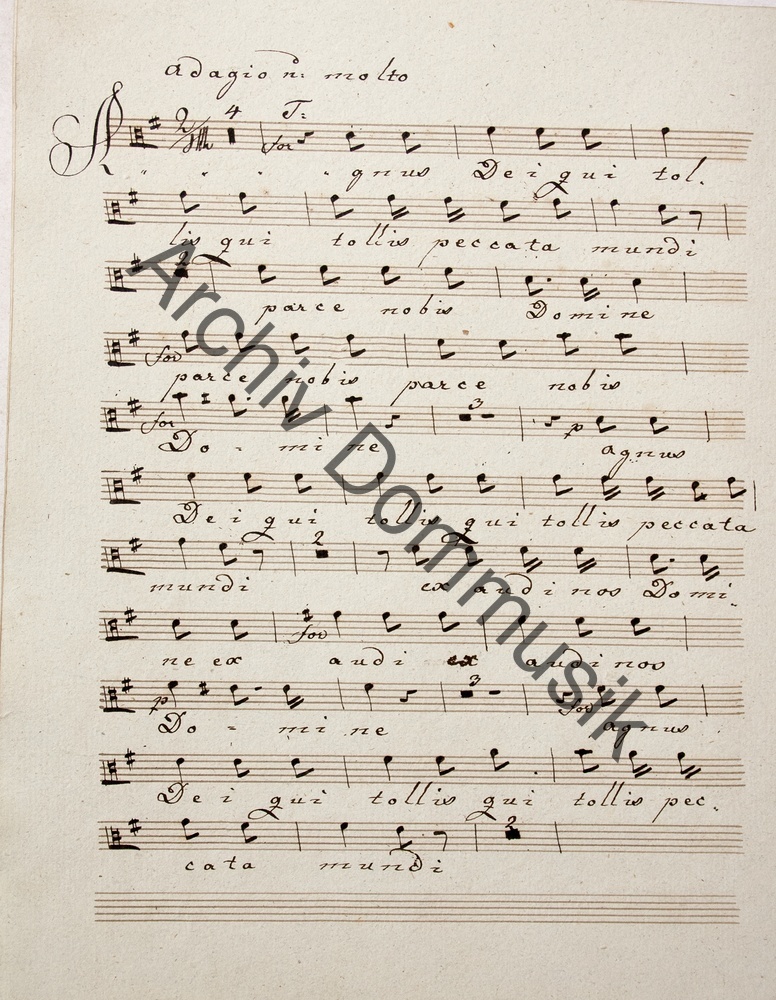 Adagio n: molto
2 4 T:
for
A " " " " gnus Dei qui tol.
lis qui tollis peccata mundi
2
parce nobis Domine
for
parce nobis parce nobis
for 3 p
Do - mi ne agnus
Dei qui tollis qui tollis peccata
2
mundi exaudi nos Domi-
for
ne ex audi ex audi nos
p 3 for
Do - mi ne agnus
Dei qui tollis qui tollis pec-
2
cata mundi
Archiv Dommusik